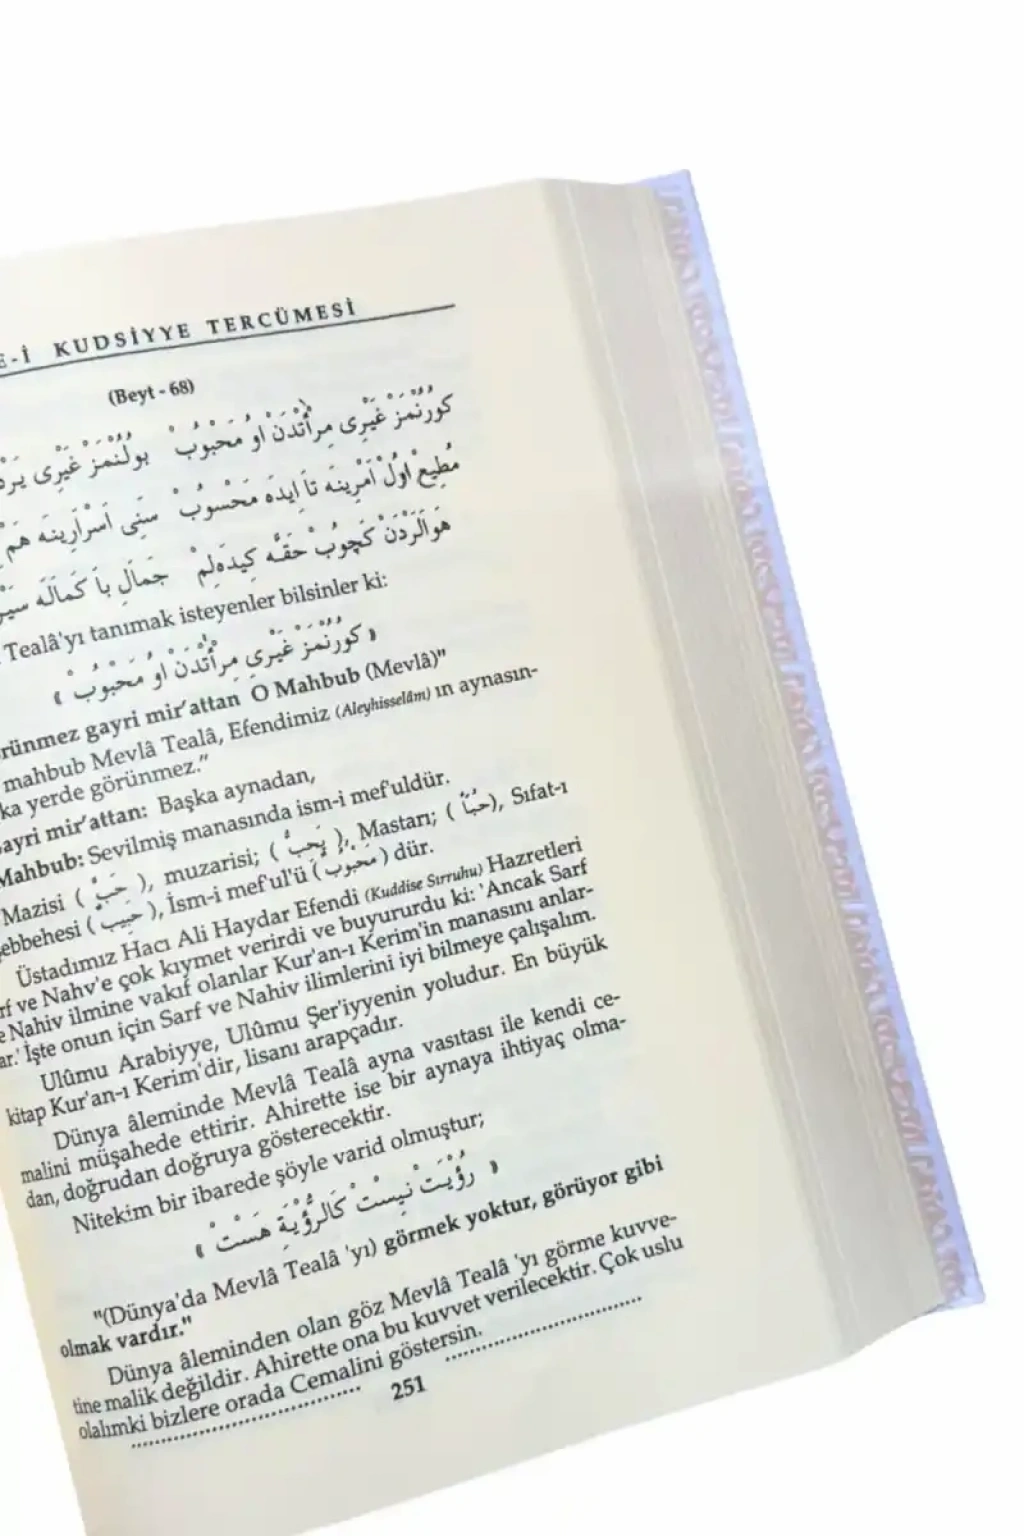 E-İ KUDSİYYE TERCÜMESİ
(Beyt - 68)
كُورُنْمَزْ غَيْرِى مِرْأَتْدَنْ اوُ مَحْبُوبْ بُولُنْمَزْ غَيْرِى
مُطِيعْ اوُلْ اَمْرِينَه تَا اِيدَه مَحْسُوبْ سَنِى اَسْرَارِينَه هَمْ
هَوَالَرْدَنْ كَچُوبْ حَقَّه كِيدَه‌لِمْ جَمَالِ بَا كَمَالَه
Tealâ'yı tanımak isteyenler bilsinler ki:
« كُورُنْمَزْ غَيْرِى مِرْأَتْدَنْ اوُ مَحْبُوبْ »
rünmez gayri mir'attan O Mahbub (Mevlâ)"
mahbub Mevlâ Tealâ, Efendimiz (Aleyhisselâm) ın aynasın-
ka yerde görünmez."
ayri mir'attan: Başka aynadan,
Mahbub: Sevilmiş manasında ism-i mef'uldür.
Mazisi ( حَبَّ ), muzarisi; ( يَحِبُّ ), Mastarı; ( حُبًّا ), Sıfat-ı
ebbehesi ( حَبِيبٌ ), İsm-i mef'ul'ü ( مَحْبُوبٌ ) dür.
Üstadımız Hacı Ali Haydar Efendi (Kuddise Sırruhu) Hazretleri
rf ve Nahv'e çok kıymet verirdi ve buyururdu ki: 'Ancak Sarf
e Nahiv ilmine vakıf olanlar Kur'an-ı Kerim'in manasını anlar-
ar.' İşte onun için Sarf ve Nahiv ilimlerini iyi bilmeye çalışalım.
Ulûmu Arabiyye, Ulûmu Şer'iyyenin yoludur. En büyük
kitap Kur'an-ı Kerim'dir, lisanı arapçadır.
Dünya âleminde Mevlâ Tealâ ayna vasıtası ile kendi ce-
malini müşahede ettirir. Ahirette ise bir aynaya ihtiyaç olma-
dan, doğrudan doğruya gösterecektir.
Nitekim bir ibarede şöyle varid olmuştur;
« رُؤْيَتْ نِيسْتْ كَالرُّؤْيَةِ هَسَتْ »
"(Dünya'da Mevlâ Tealâ 'yı) görmek yoktur, görüyor gibi
olmak vardır."
Dünya âleminden olan göz Mevlâ Tealâ 'yı görme kuvve-
tine malik değildir. Ahirette ona bu kuvvet verilecektir. Çok uslu
olalımki bizlere orada Cemalini göstersin.
251